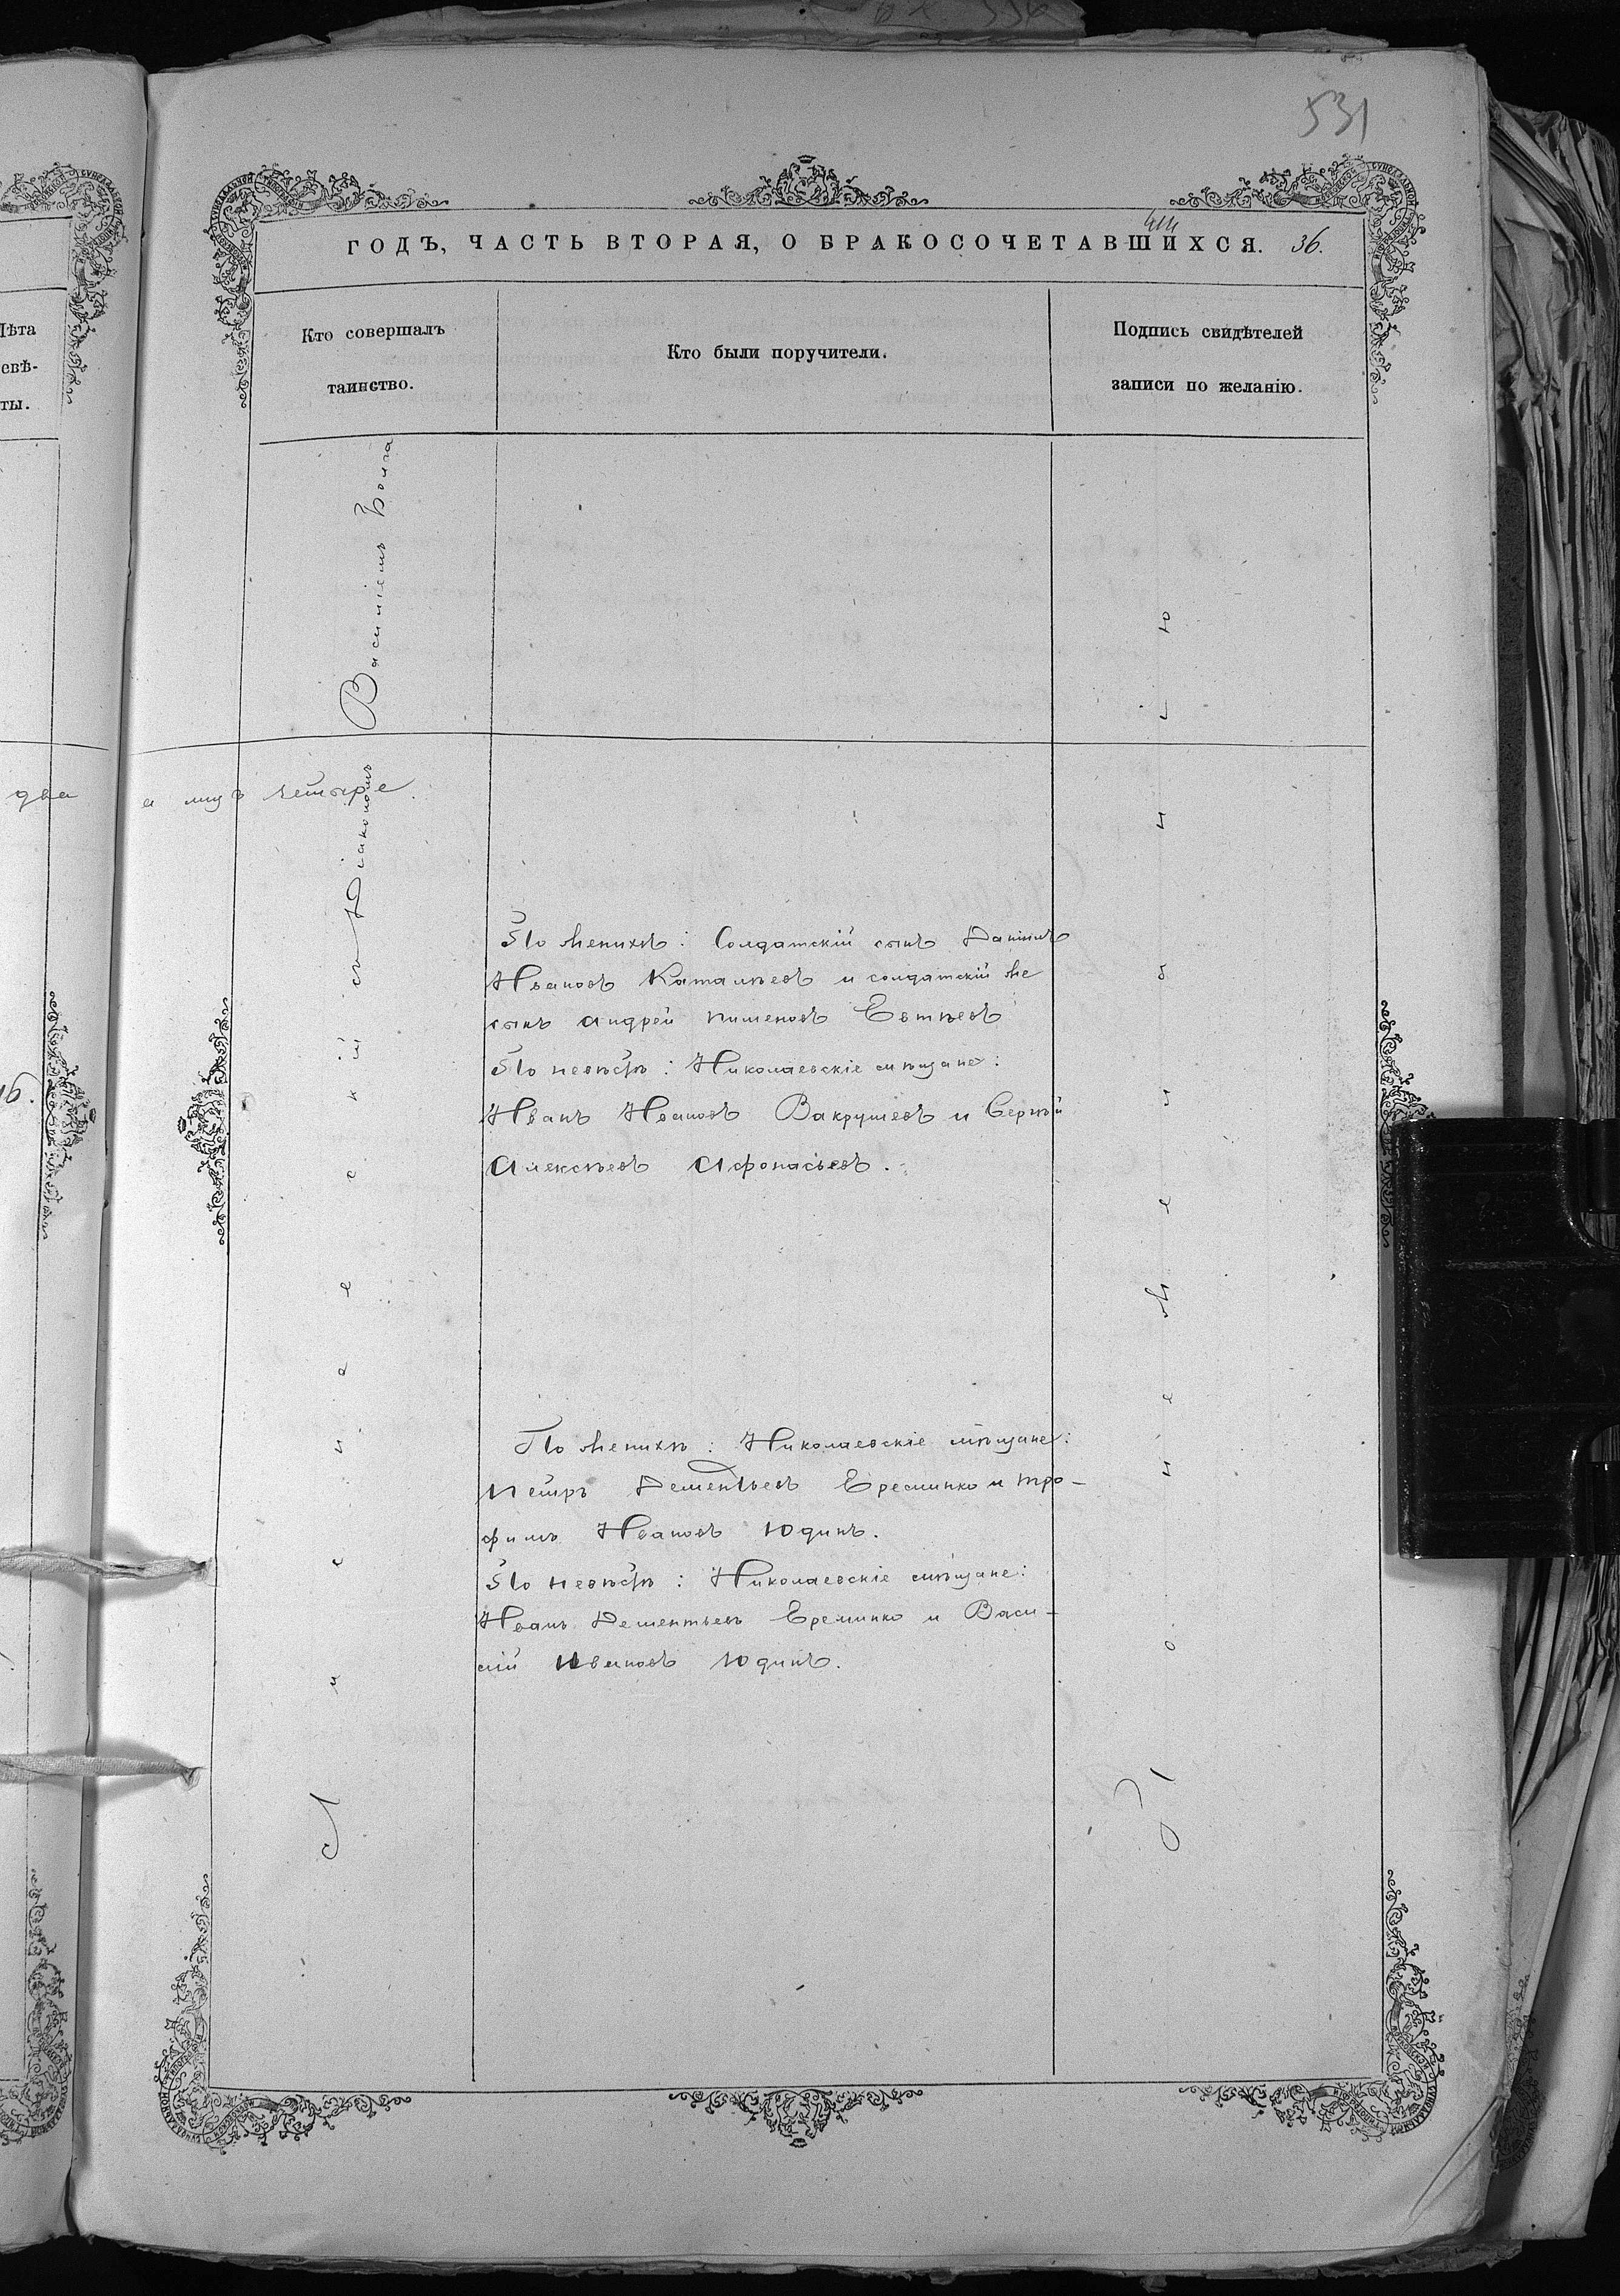 531
ГОДЪ, ЧАСТЬ ВТОРАЯ, О БРАКОСОЧЕТАВШИХСЯ. 36.
Лѣта
свѣ-
ты.
Кто совершалъ
таинство.
Кто были поручители.
Подпись свидѣтелей
записи по желанію.
два а муз четыре
съ Діакономъ Василіемъ
По женихѣ: Солдатскій сынъ Даніилъ
Ивановъ Каталѣевъ и солдатскій же
сынъ Андрей Пименовъ Евтѣевъ
По невѣстѣ: Николаевскіе мѣщане:
Иванъ Ивановъ Вакрушевъ и Сергѣй
Алексѣевъ Афонасьевъ.
По женихѣ: Николаевскіе мѣщане:
Петръ Дементьевъ Ереминко и Тро-
фимъ Ивановъ Юдинъ.
По невѣстѣ: Николаевскіе мѣщане:
Иванъ Дементьевъ Ереминко и Васи-
лій Ивановъ Юдинъ.